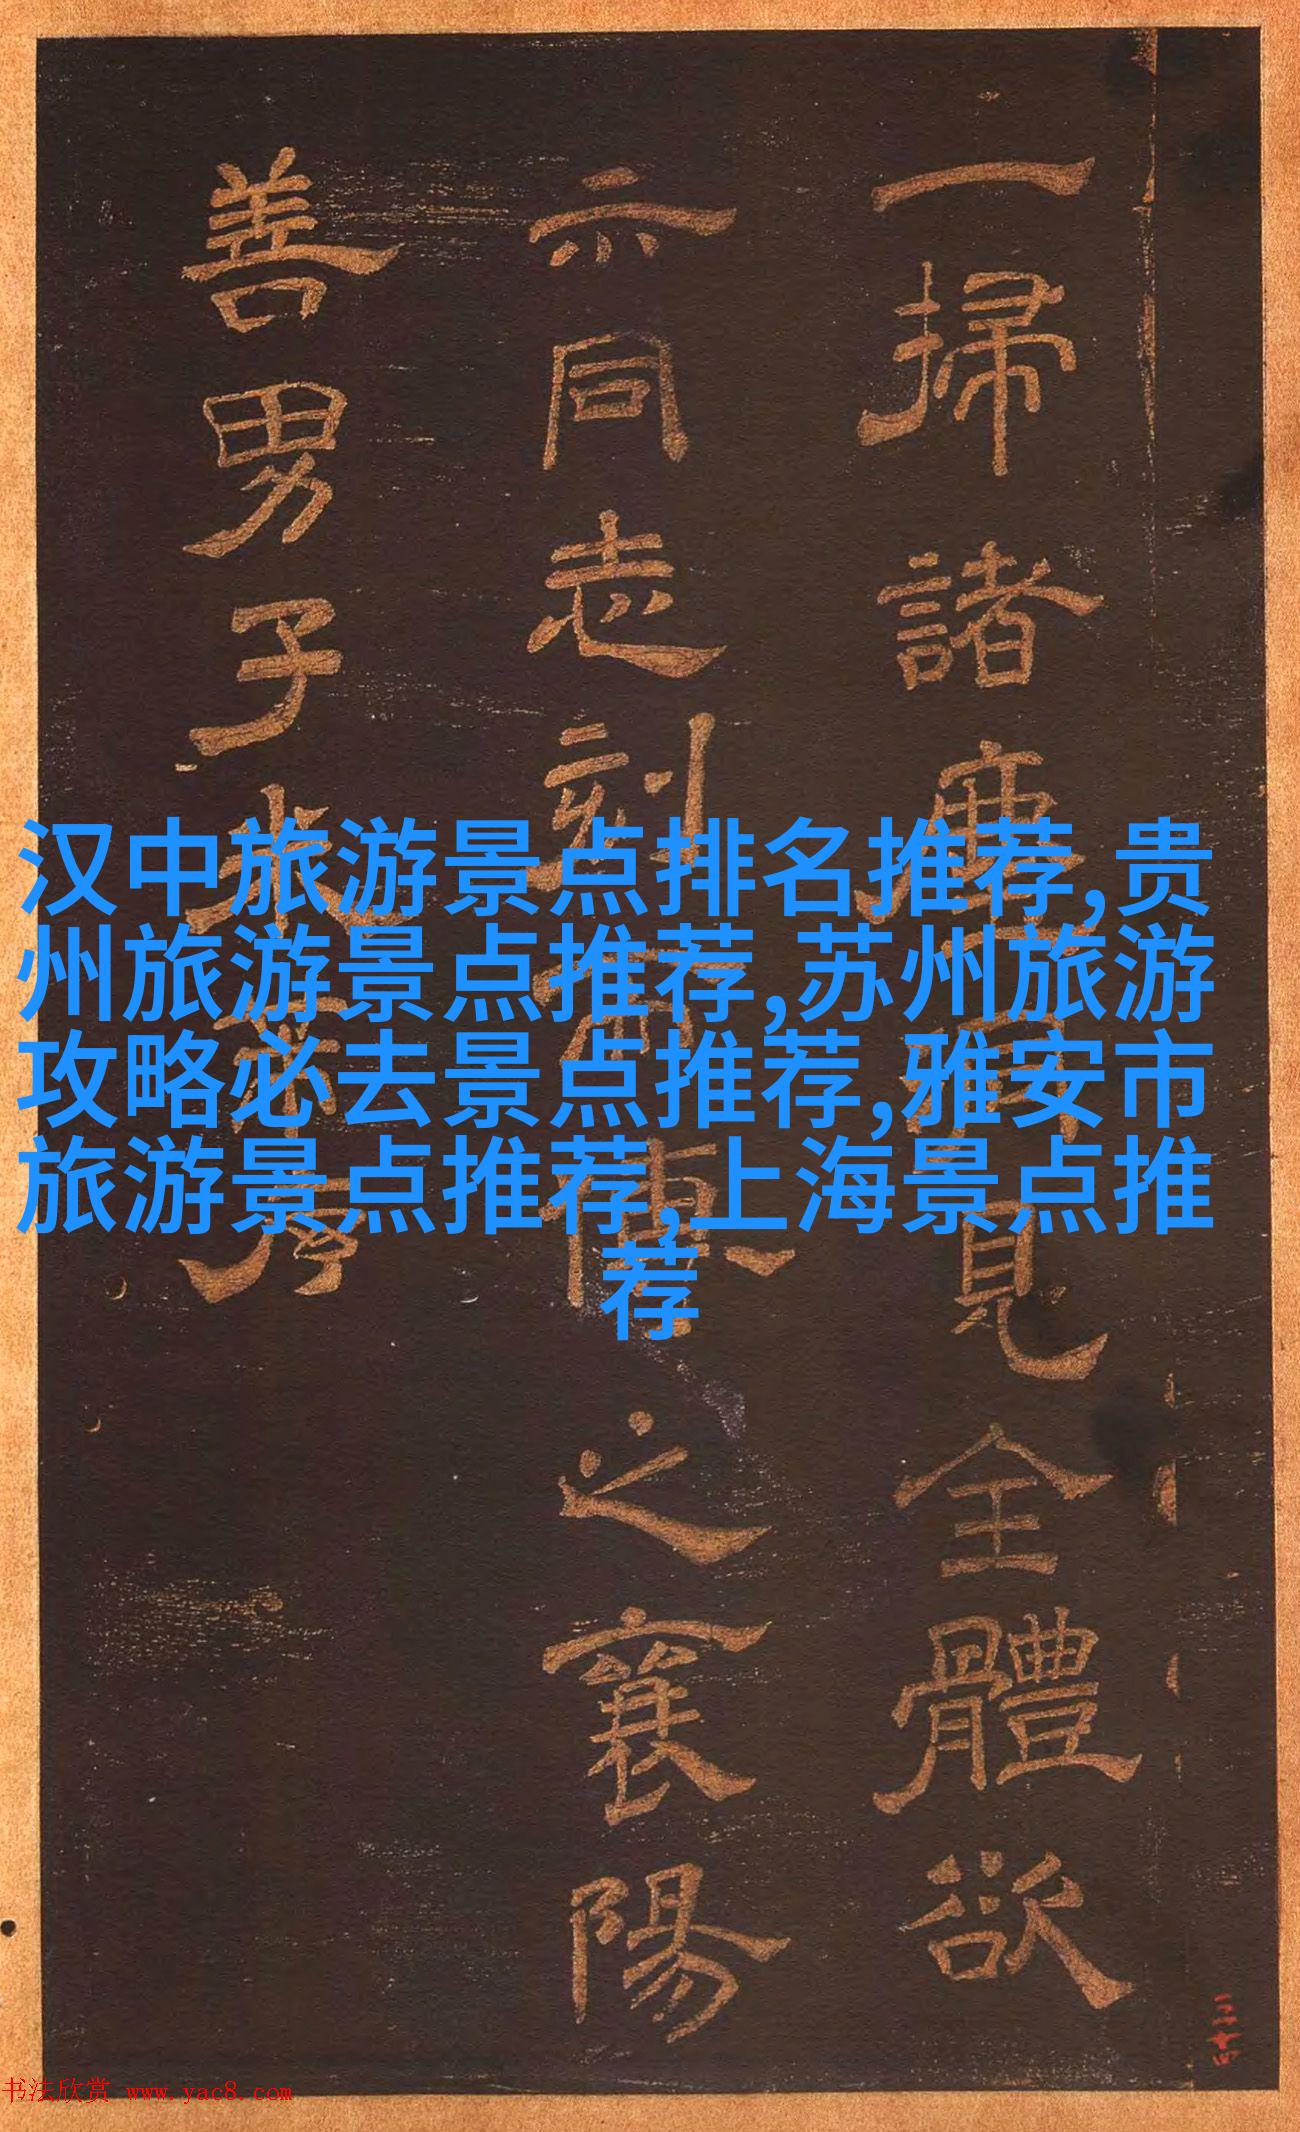 汉中旅游景点排名推荐,贵
州旅游景点推荐,苏州旅游
攻略必去景点推荐,雅安市
旅游景点推荐,上海景点推
荐
一掃諸見全體欲
示同志刻而傳之襄陽
善男子
三十四
书法欣赏 www.yac8.com